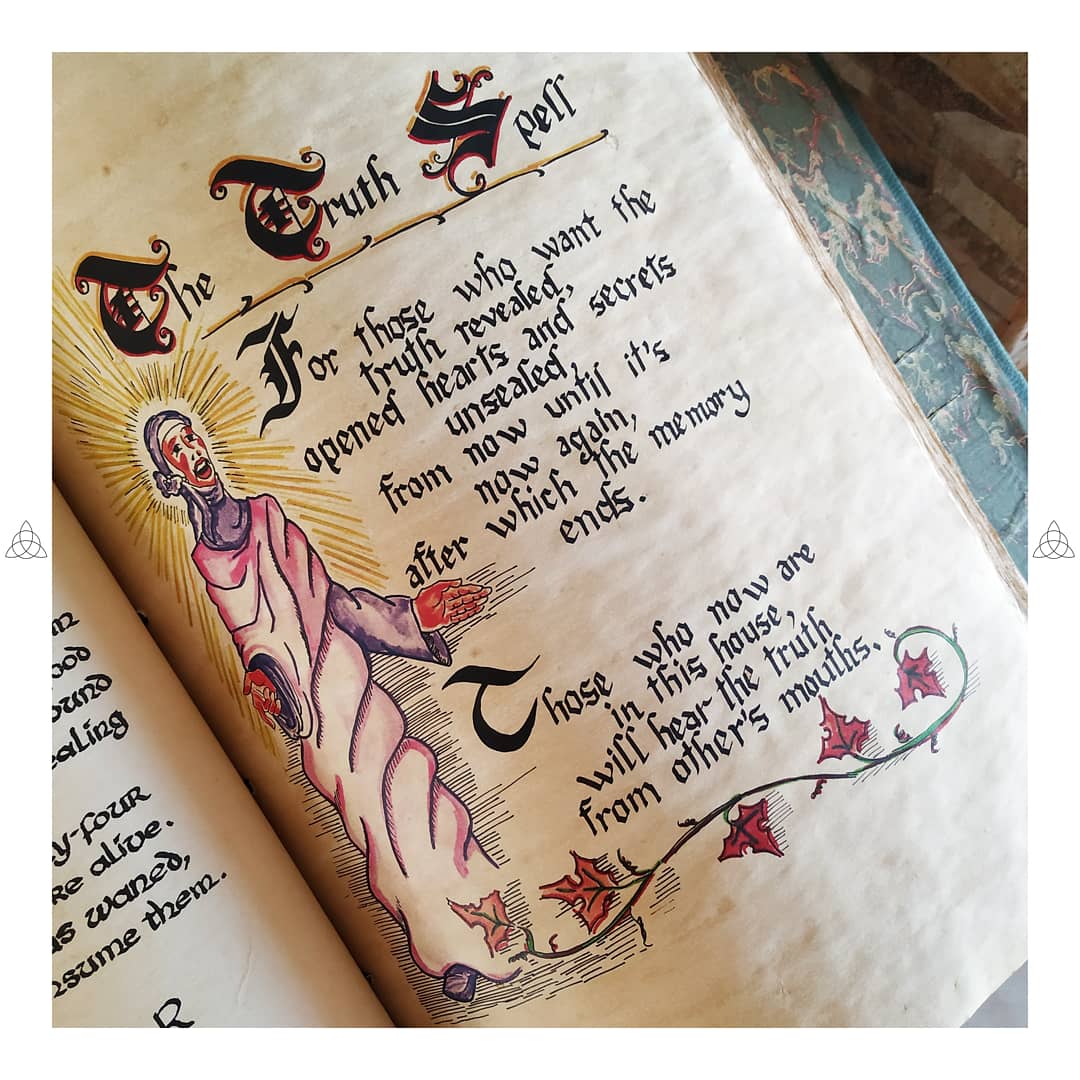 The Truth Spell
For those who want the
truth revealed,
opened hearts and secrets
unsealed,
from now until it's
now again,
after which the memory
ends.
Those who now are
in this house,
will hear the truth
from other's mouths.
ealing
y-four
re alive.
s waned,
nsume them.
R